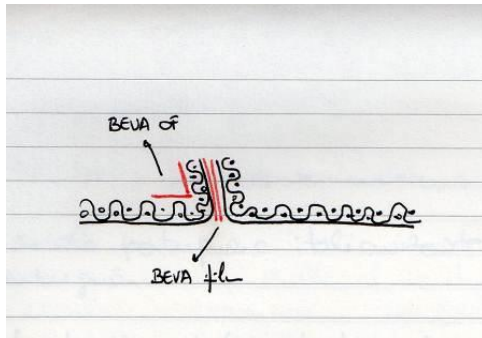 BEVA OF
BEVA film